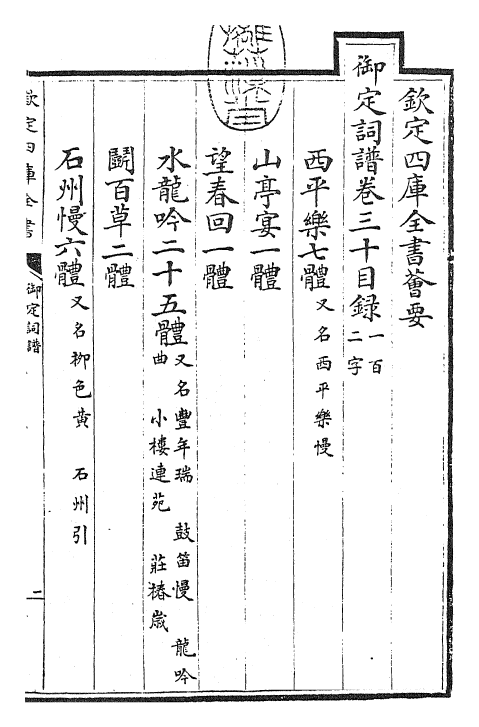 欽定四庫全書薈要
御定詞譜卷三十目録 一百二字
西平樂七體 又名西平樂慢
山亭宴一體
望春回一體
水龍吟二十五體 又名豐年瑞 鼓笛慢 龍吟
曲 小樓連苑 莊椿歲
鬬百草二體
石州慢六體 又名柳色黄 石州引
欽定四庫全書 御定詞譜 二